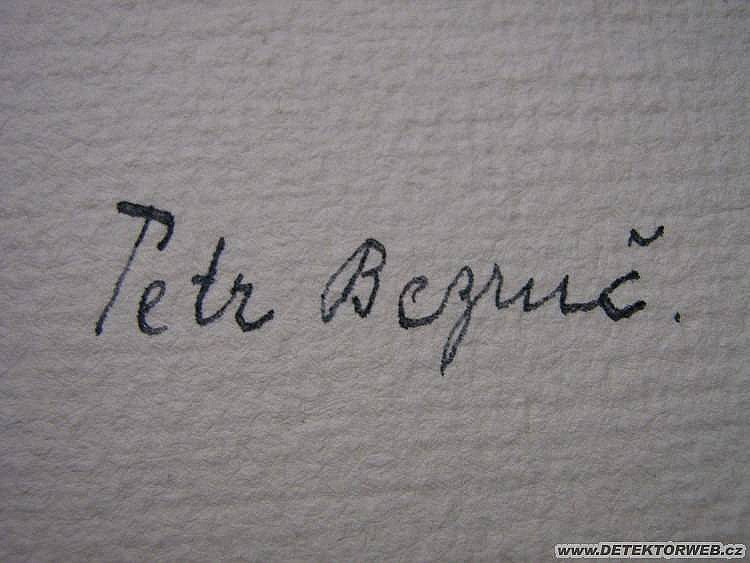 Petr Bezruč.
www.DETEKTORWEB.cz